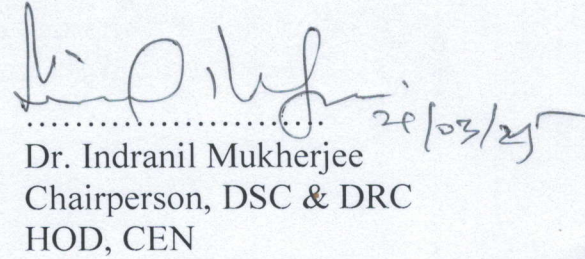 ....................................
Dr. Indranil Mukherjee
Chairperson, DSC & DRC
HOD, CEN